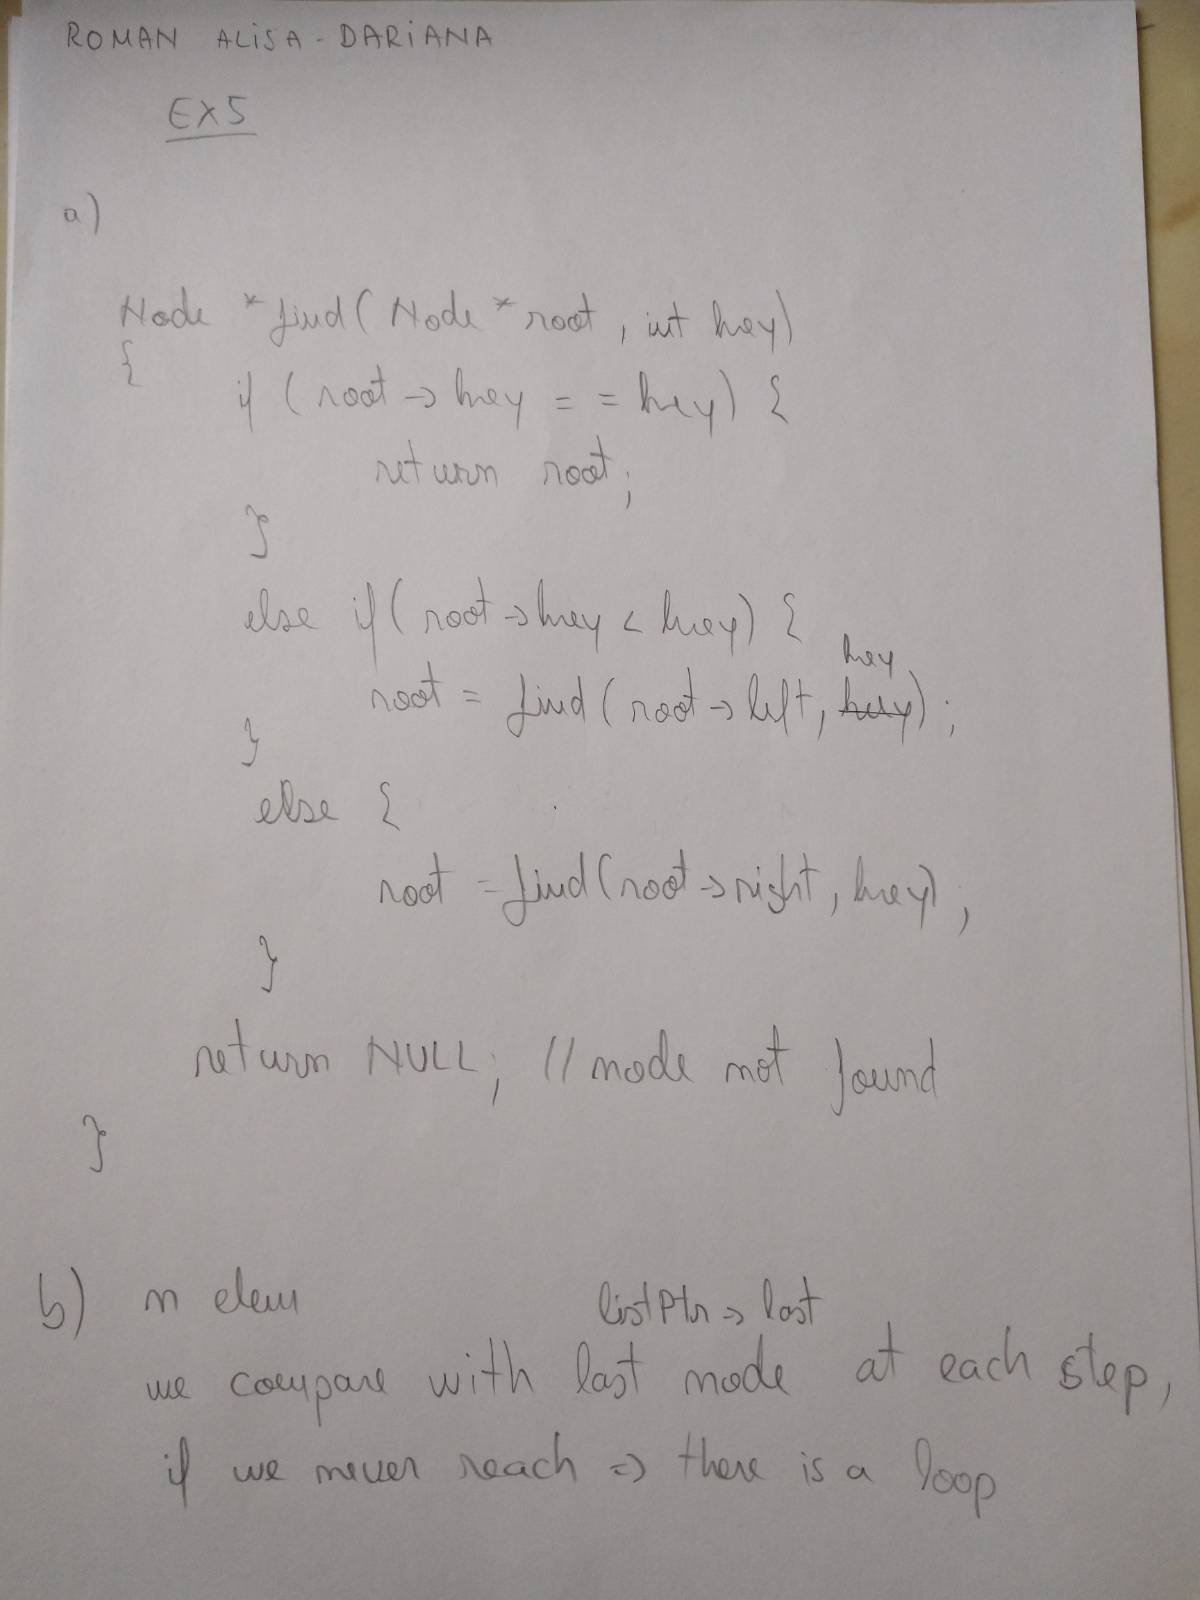 ROMAN ALISA-DARIANA
EX5
a)
Node *find(Node *root, int key)
{
if (root->key == key) {
return root;
}
else if (root->key < key) {
key
root = find(root->left, key);
}
else {
root = find(root->right, key);
}
return NULL; // node not found
}
b) n elem
listPtr->last
we compare with last node at each step,
if we never reach => there is a loop